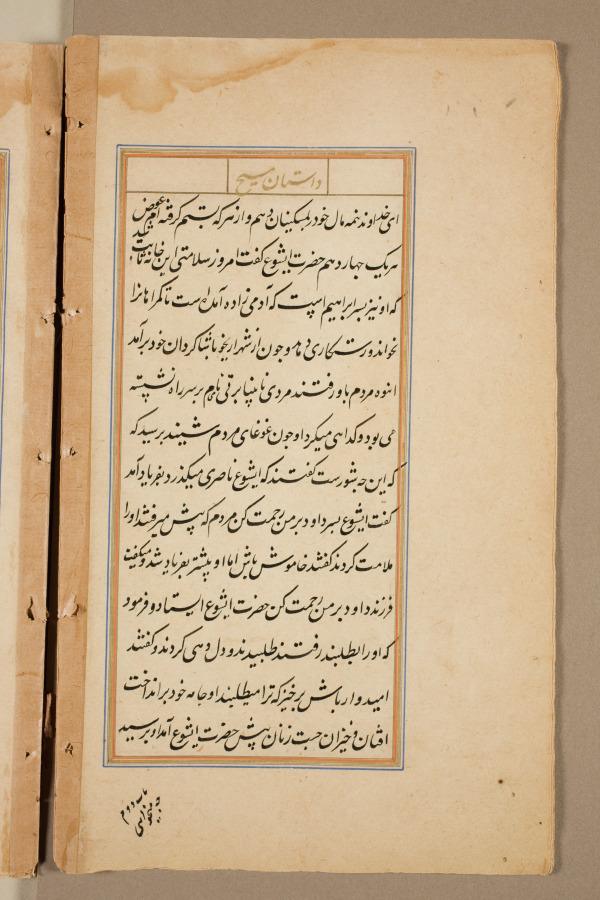 داستان مسیح
ای خداوند نیمه مال خود را بمسکینان دهم و از هر که بستم گرفته ام عوض
هر یک چهار دهم حضرت ایشوع گفت امروز سلامتی این خانه
که او نیز پسر ابراهیم است که آدمی زاده آمده است تا گمراهانرا
بخواند و رستگاری دهد و چون از شهر اریحو با شاگردان خود برآمد
انبوه مردم باو رفتند مردی نابینا برتی نام بر سر راه نشسته
می بود و گدایی میکرد او چون غوغای مردم شنیند پرسید که
که این چه شورست گفتند که ایشوع ناصری میگذرد بفریاد آمد
گفت ایشوع پسر داود بر من رحمت کن مردم که پیش میرفتند او را
ملامت کردند گفتند خاموش باش اما او بیشتر بفریاد شد و میگفت
فرزند داود بر من رحمت کن حضرت ایشوع ایستاد و فرمود
که او را بطلبند رفتند طلبیدند و دل دهی کردند و گفتند
امیدوار باش برخیز که ترا میطلبند او جامه خود برانداخت
افتان و خیزان جست زنان پیش حضرت ایشوع آمد او پرسید